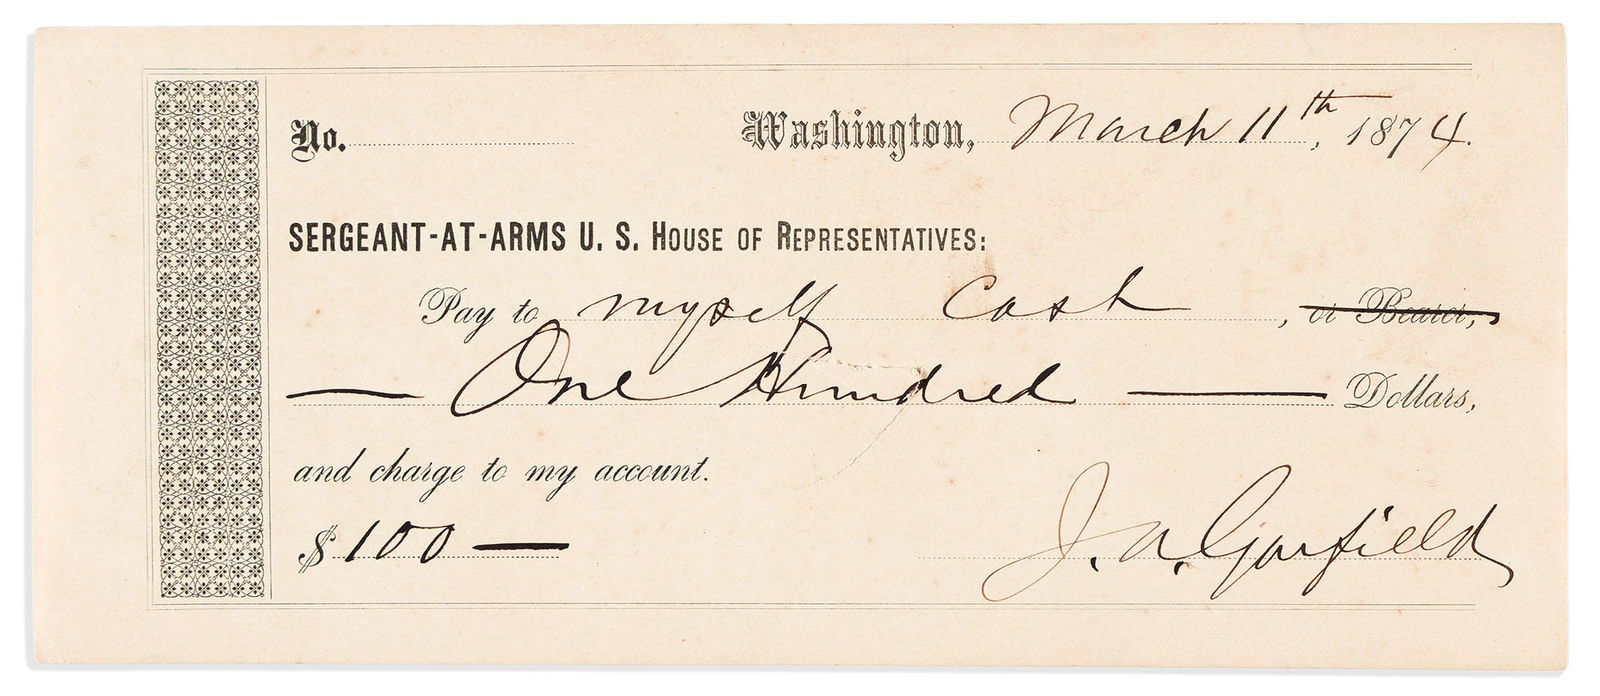 No. Washington, March 11th, 1874.
SERGEANT-AT-ARMS U. S. HOUSE OF REPRESENTATIVES:
Pay to myself cash, or Bearer,
— One Hundred — Dollars,
and charge to my account.
$100 — J. A. Garfield